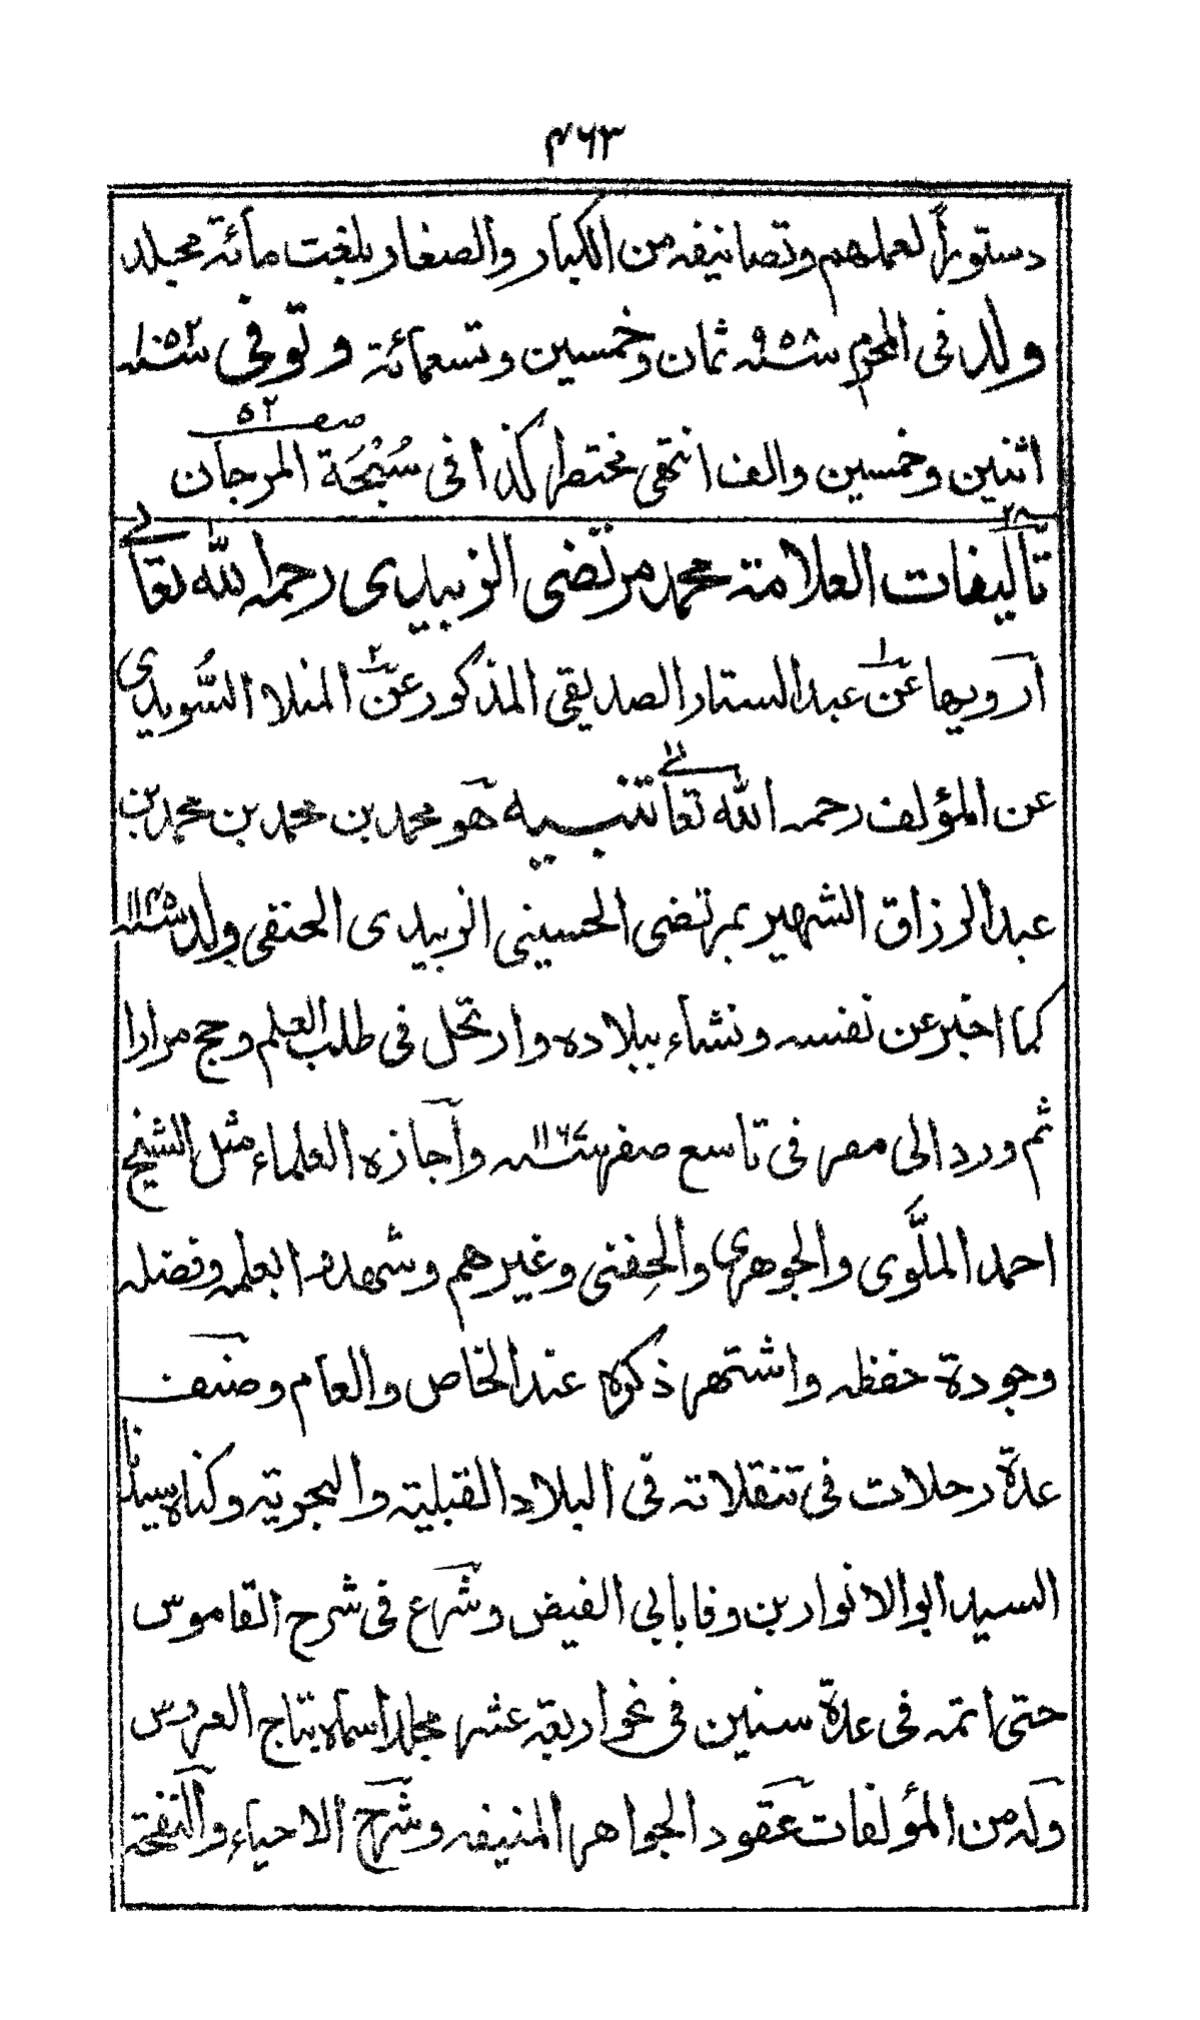 ۴۶۳
دستوراً لعملهم وتصانيفه من الكبار والصغار بلغت مائة مجلد
ولد فى المحرم سنة ۹۵۸ ثمان وخمسين وتسعمائة وتوفى سنة ۱۰۵۲
اثنين وخمسين والف انتهى مختصرا كذا فى سُبْحَة المرجان صفـ ۵۲
۲۸ تأليفات العلامة محمد مرتضى الزبيدى رحمه الله تعالے
أرويها عن۱ عبد الستار الصديقى المذكور عن۲ المنلا السُّويدى
عن المؤلف رحمه الله تعالے ۱۱ تنبيه هو محمد بن محمد بن محمد بن
عبد الرزاق الشهير بمرتضى الحسينى الزبيدى الحنفى ولد سنة ۱۱۴۵
كما اخبر عن نفسه ونشاء ببلاده وارتحل فى طلب العلم وحج مرارا
ثم ورد الى مصر فى تاسع صفر سنة ۱۱۶۷ وأجازه العلماء مثل الشيخ
احمد الملَّوى والجوهرى والحِفنى وغيرهم وشهدوا بعلمه وفضله
وجودة حفظه واشتهر ذكره عند الخاص والعام وصنف
عدة رحلات فى تنقلاته فى البلاد القبلية والبحرية وكناه سيدنا
السيد ابو الانوار بن وفا بابى الفيض وشرع فى شرح القاموس
حتى اتمه فى عدة سنين فى نحو اربعة عشر مجلدا سماه بتاج العروس
وله من المؤلفات عقود الجواهر المنيفه وشرح الاحياء والنفحة